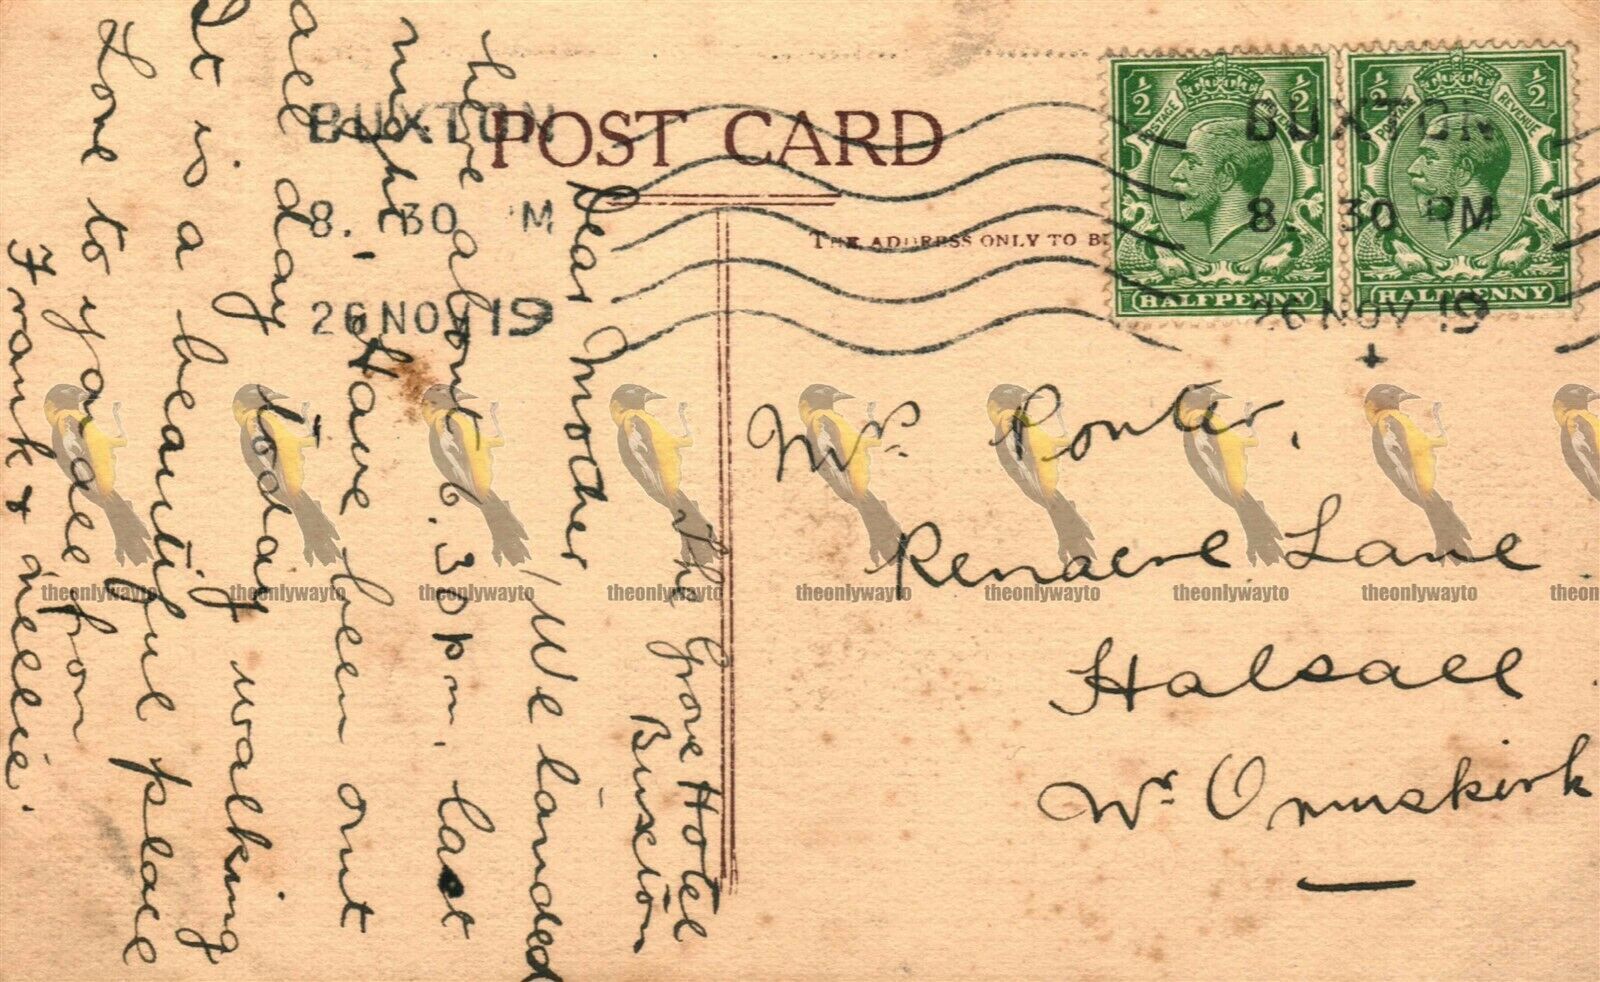 POST CARD
THE ADDRESS ONLY TO B
BUXTON
8. 30 M
26 NOV 19
BUXTON
8. 30 PM
26 NOV 19
1/2 1/2
POSTAGE REVENUE
HALFPENNY
1/2 1/2
POSTAGE REVENUE
HALFPENNY
The Grove Hotel
Buxton
Dear Mother, We landed
here about 6.30 pm. last
night. Have been out
all day today walking
It is a beautiful place
Love to you all from
Frank & Nellie.
Mrs Ponter,
Renacre Lane
Halsall
Nr Ormskirk
theonlywayto theonlywayto theonlywayto theonlywayto theonlywayto theonlywayto theonlywayto theonlywayto theon